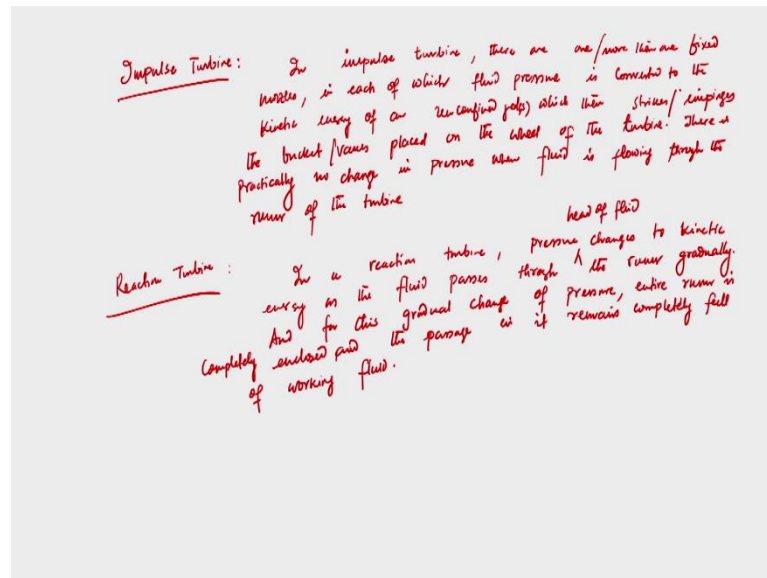 Impulse Turbine : In impulse turbine, there are one/more than one fixed
nozzles, in each of which fluid pressure is converted to the
kinetic energy of an unconfined jet(s) which then strikes/impinges
the bucket/vanes placed on the wheel of the turbine. There is
practically no change in pressure when fluid is flowing through the
runner of the turbine
Reaction Turbine : In a reaction turbine, pressure changes to kinetic
head of fluid
energy as the fluid passes through ^ the runner gradually.
And for this gradual change of pressure, entire runner is
completely enclosed and the passage in it remains completely full
of working fluid.